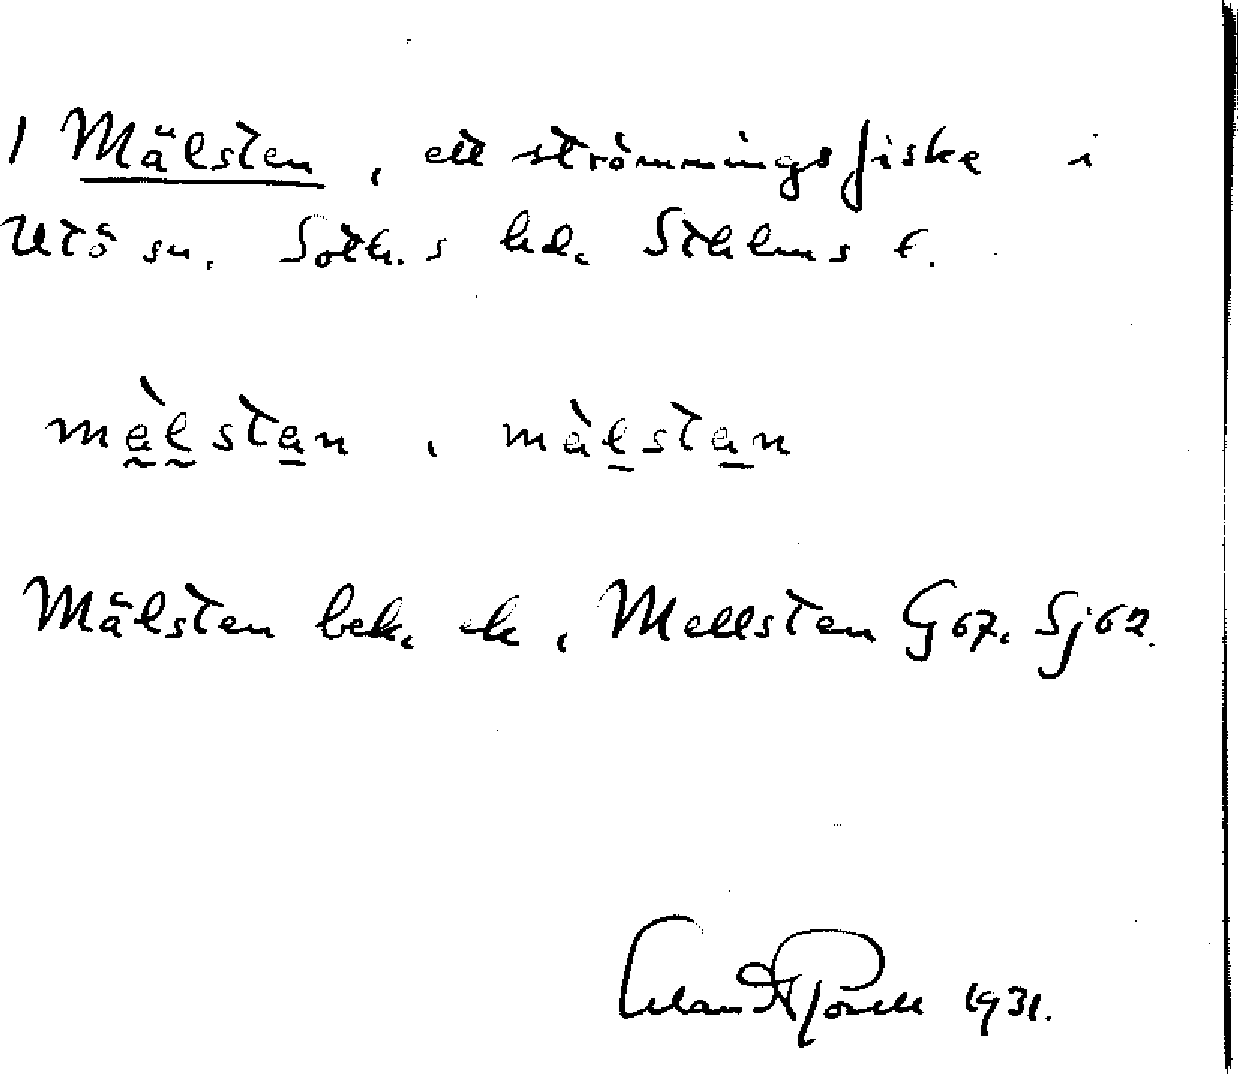 1 Mälsten, ett strömmingsfiske i
Utö sn. Soth.s hd. Sthlms l.
mälstan, mälstan
Mälsten bek. ek, Mellsten
1931.